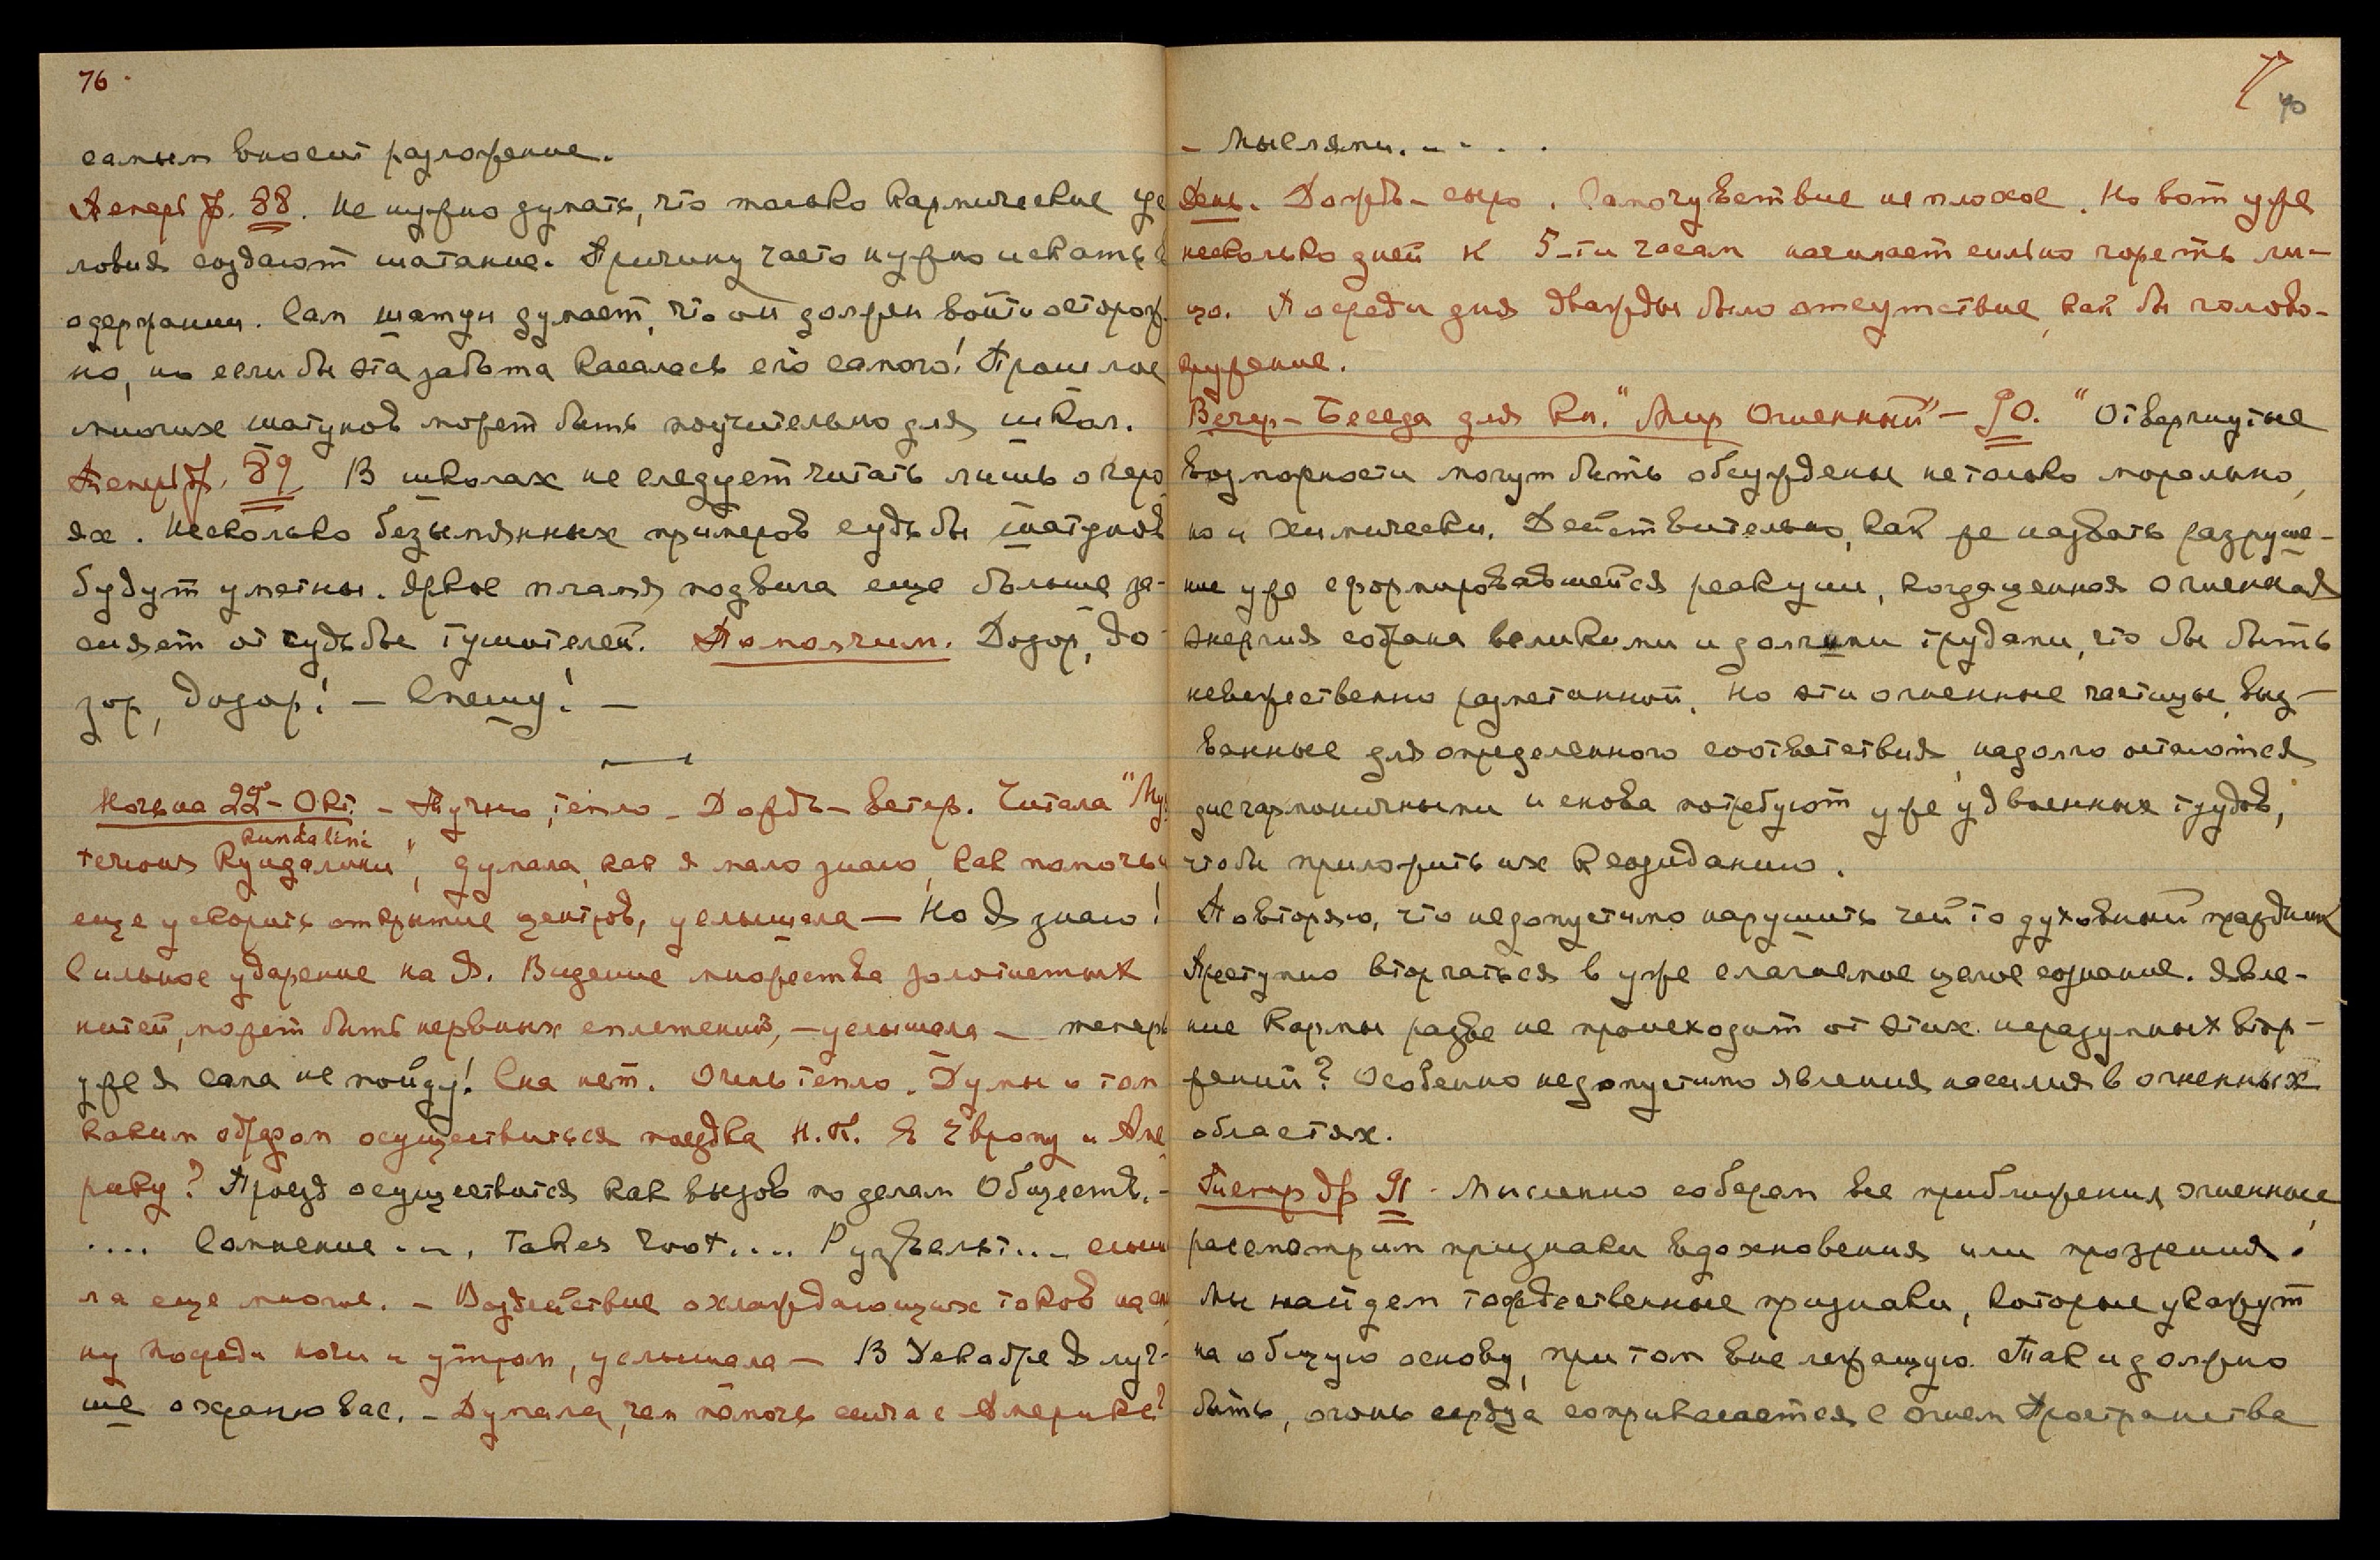 76
самым вносит разложение.
Теперь ф. 88. Не нужно думать, что только кармические ус
ловия создают шатание. Причину часто нужно искать в
одержании. Сам шатун думает, что он должен войти осторож
но, но если бы эта забота касалась его самого! Прошлое
многих шатунов может быть поучительно для школ.
Теперь ф. 89 В школах не следует читать лишь о геро
ях. Несколько безымянных примеров судьбы шатунов
будут уместны. Яркое пламя подвига еще больше за-
сияет от судьбы тушителей. Помолчим. Дозор, до-
зор, дозор! — Спешу! —
Ночь на 22ое - Окт. - Тучно, тепло - Дождь - ветер. Читала "Му
Kundalini
терious Кундалини", думала, как я мало знаю, как помочь и
еще ускорить открытие центров, услышала — Но Я знаю!
Сильное ударение на Я. Видение множества золотистых
нитей, может быть нервных сплетений, - услышала - теперь
уже я сама не пойду! Сна нет. Очень тепло. Думы о том
каким образом осуществится поездка Н.К. в Европу и Аме
рику? Проезд осуществится как вызов по делам Обществ. -
.... Сомнение ... Takes root.... Рузвельт... слыш
ла еще многое. - Воздействие охлаждающих токов на сп
ну посреди ночи и утром, услышала — В Декабре Я луч-
ше охраню вас. - Думала, чем помочь сейчас Америке?
77
40
- Мыслями. - - . .
День. Дождь - сыро. Самочувствие не плохое. Но вот уже
несколько дней к 5-ти часам начинает сильно гореть ли-
цо. Посреди дня дважды было отсутствие, как бы голово-
кружение.
Вечер - Беседа для Кн. "Мир Огненный" - 90. "Отвергнутые
возможности могут быть обсуждены не только морально,
но и химически. Действительно, как же назвать разруше-
ние уже сформировавшейся реакции, когда ценная огненная
энергия собрана великими и долгими трудами, что бы быть
невежественно разметанной. Но эти огненные частицы, выз-
ванные для определенного соответствия, надолго остаются
дисгармоничными и снова потребуют уже удвоенных трудов,
чтобы приложить их к созиданию.
Повторяю, что недопустимо нарушить чей то духовный праздник
Преступно вторгаться в уже слагаемое целое сознание. Явле-
ние Кармы разве не происходит от этих неразумных втор-
жений? Особенно недопустимо явления насилия в огненных
областях.
Теперь дф 91 - Мысленно соберем все приближения огненные,
рассмотрим признаки вдохновения или прозрения.
Мы найдем тождественные признаки, которые укажут
на общую основу, при том вне лежащую. Так и должно
быть, огонь сердца соприкасается с Огнем Пространства